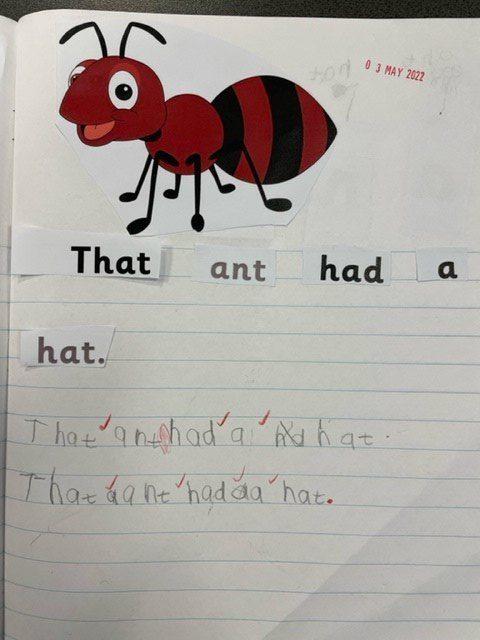 03 MAY 2022
That ant had a
hat.
That ant had a hat.
That aant had aa hat.